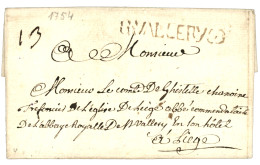 1754
St VALLERY S
13
A Monsieur
Monsieur Le Comte De Ghistelle chanoine
Trefoncier De L'eglise De Liege abbé commendataire
De L'abbaye Royalle De St Vallery en Son hotel
A Liege